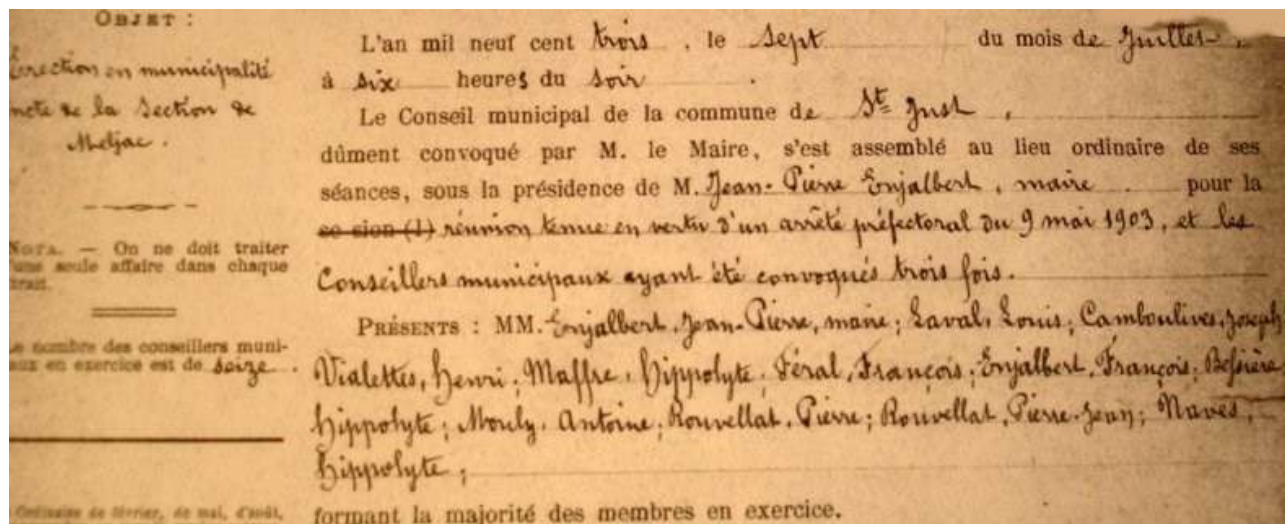 OBJET :
Erection en municipalité
de la Section de
Meljac.
NOTA. — On ne doit traiter
seule affaire dans chaque
nombre des conseillers muni-
en exercice est de seize.
Ordinaire de février, de mai, d'août,
L'an mil neuf cent trois, le sept du mois de Juillet,
à six heures du soir.
Le Conseil municipal de la commune de St Just,
dûment convoqué par M. le Maire, s'est assemblé au lieu ordinaire de ses
séances, sous la présidence de M. Jean-Pierre Enjalbert, maire pour la
se sion (1) réunion tenue en vertu d'un arrêté préfectoral du 9 mai 1903, et les
Conseillers municipaux ayant été convoqués trois fois.
PRÉSENTS : MM. Enjalbert, Jean-Pierre, maire; Laval, Louis; Camboulives, Joseph
Vialettes, Henri; Maffre, Hippolyte; Féral, François; Enjalbert, François; Bessière
Hippolyte; Mouly, Antoine; Rouvellat, Pierre; Rouvellat, Pierre-Jean; Naves,
Hippolyte;
formant la majorité des membres en exercice.